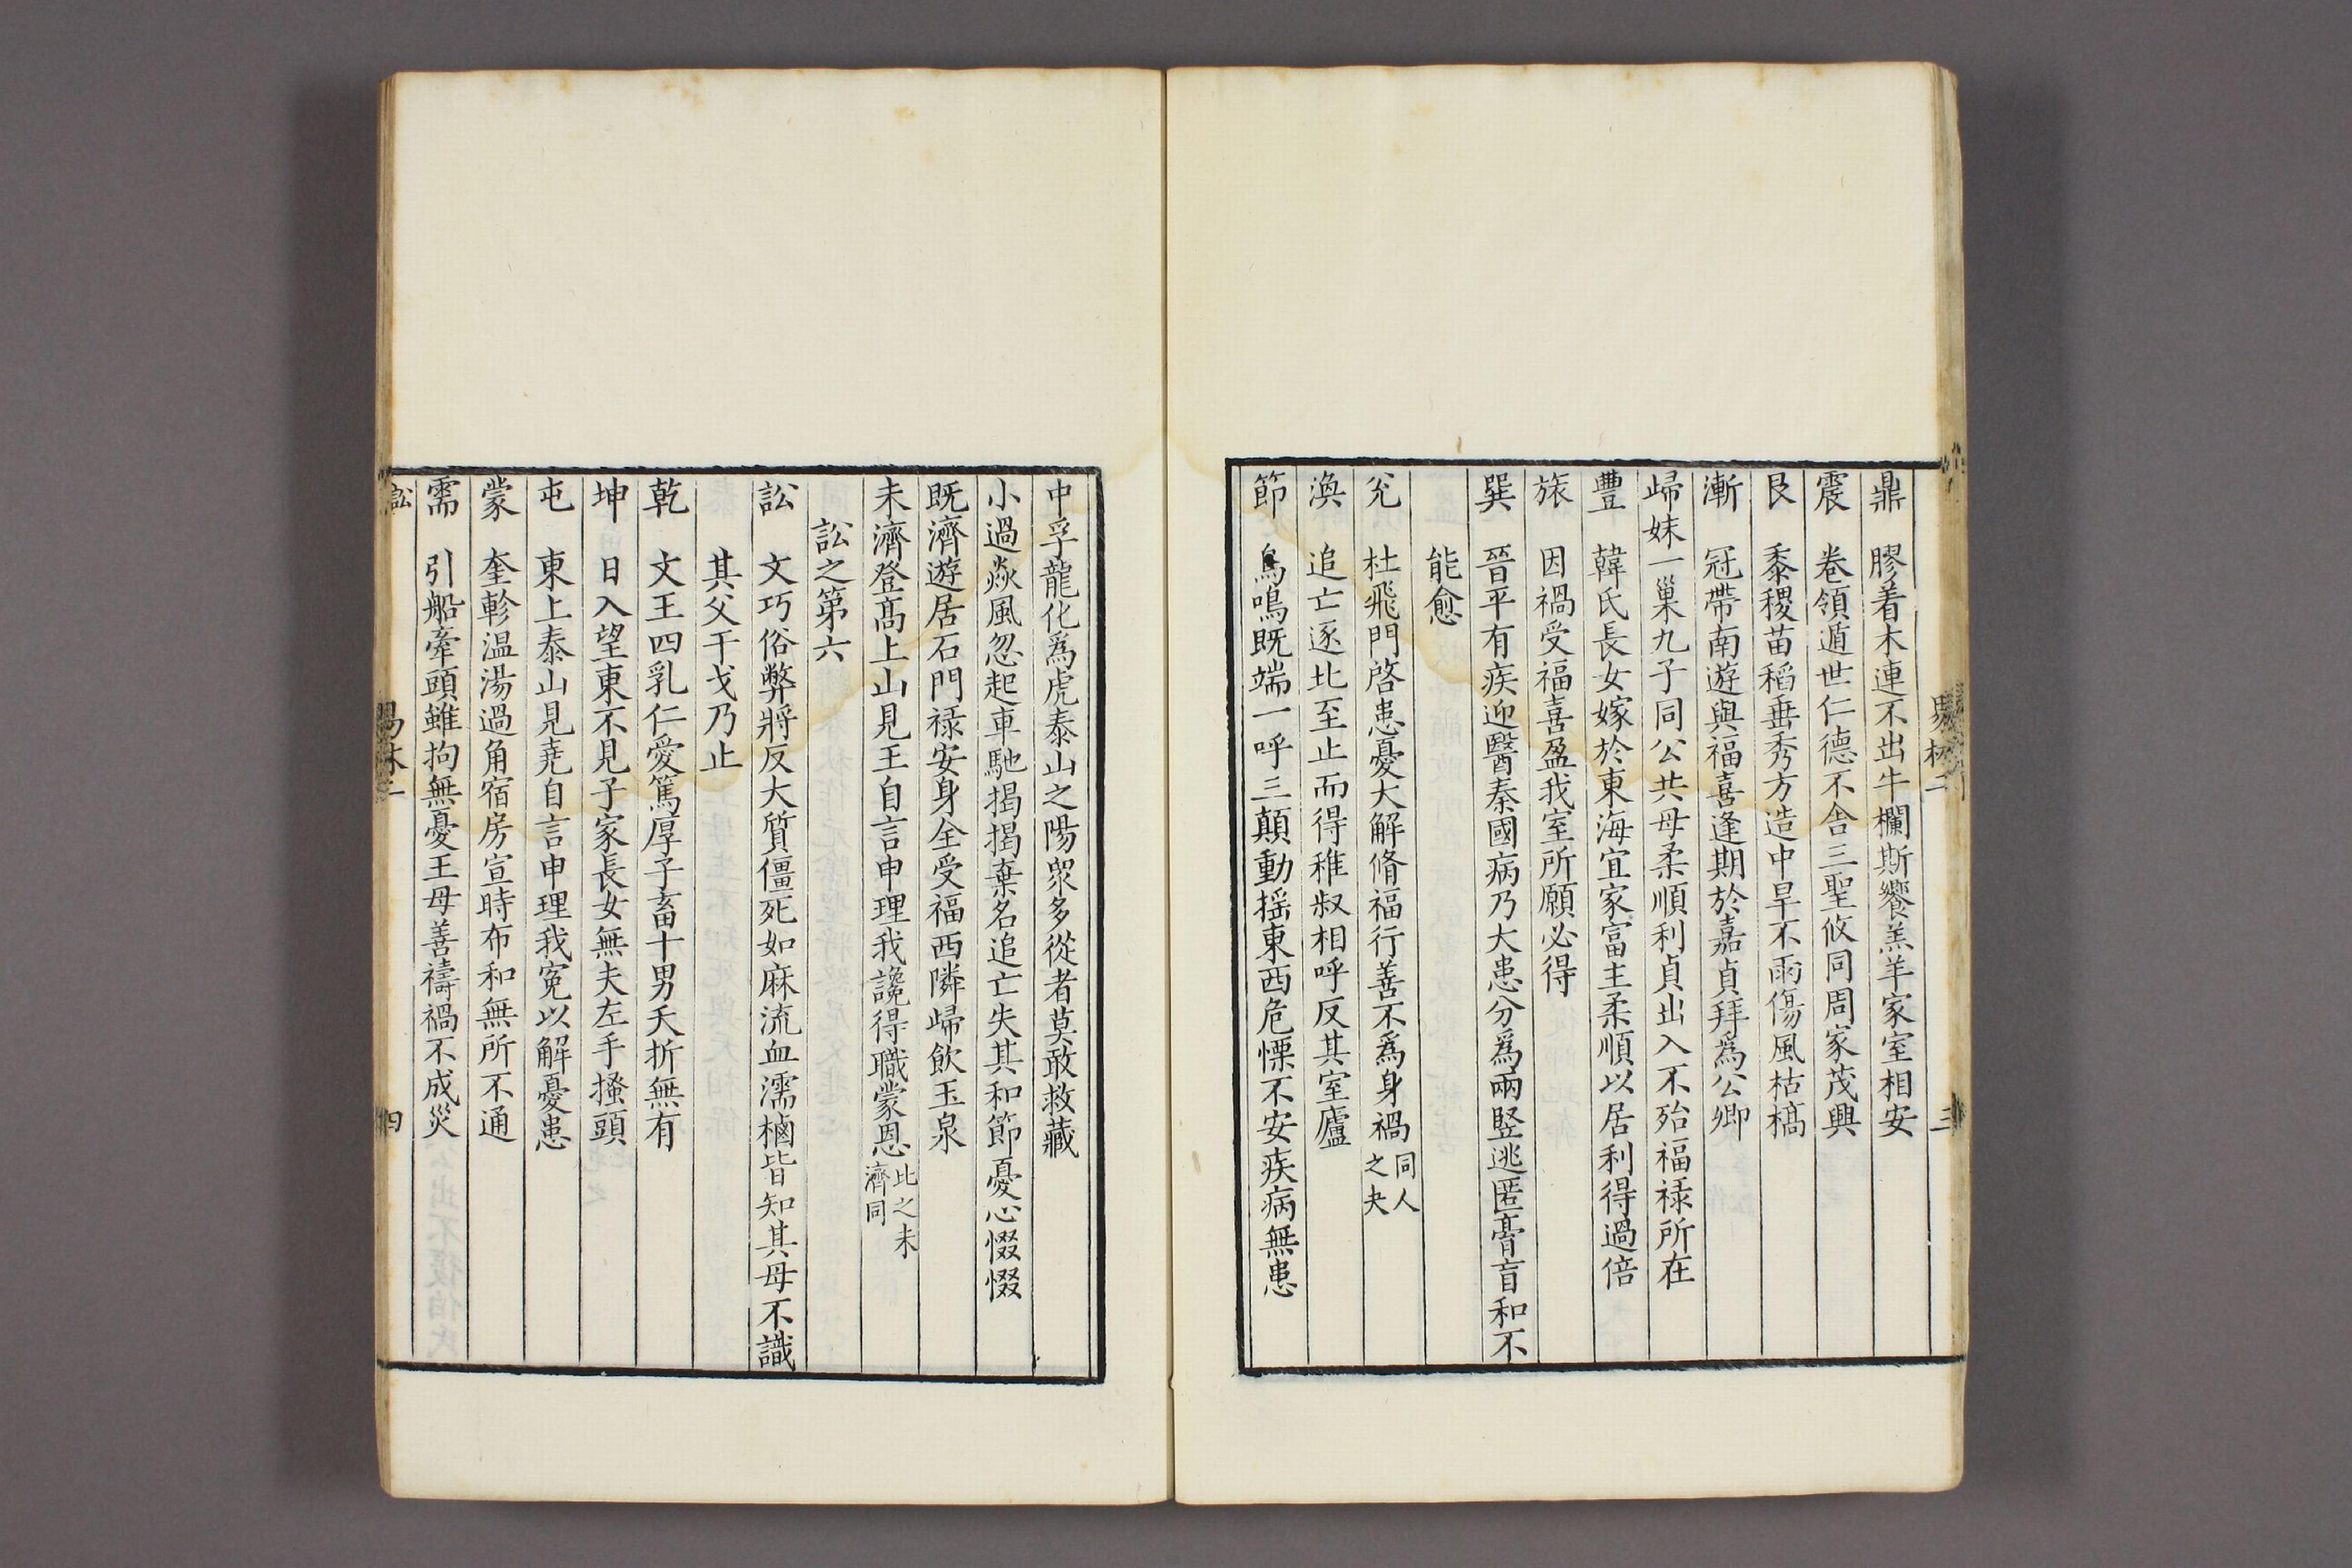 鼎　膠着木連不出牛欄斯饗羔羊家室相安
震　卷領遁世仁德不舍三聖攸同周家茂興
艮　黍稷苗稻垂秀方造中旱不雨傷風枯槁
漸　冠帶南遊與福喜逢期於嘉貞拜爲公卿
歸妹一巢九子同公共母柔順利貞出入不殆福祿所在
豐　韓氏長女嫁於東海宜家富主柔順以居利得過倍
旅　因禍受福喜盈我室所願必得
巽　晉平有疾迎醫秦國病乃大患分爲兩竪逃匿膏肓和不
能愈
兊　杜飛門啓患憂大解脩福行善不爲身禍同人之夬
渙　追亡逐北至止而得稚叔相呼反其室廬
節　鳥鳴既端一呼三顛動搖東西危慄不安疾病無患
易林二　三
中孚龍化爲虎泰山之陽衆多從者莫敢救藏
小過焱風忽起車馳揭揭棄名追亡失其和節憂心惙惙
既濟遊居石門祿安身全受福西隣歸飲玉泉
未濟登髙上山見王自言申理我讒得職蒙恩比之未濟同
訟之第六
訟　文巧俗弊將反大質僵死如麻流血濡櫓皆知其母不識
其父干戈乃止
乾　文王四乳仁愛篤厚子畜十男夭折無有
坤　日入望東不見子家長女無夫左手搔頭
屯　東上泰山見堯自言申理我寃以解憂患
蒙　奎軫温湯過角宿房宣時布和無所不通
需　引船牽頭雖拘無憂王母善禱禍不成災
訟
易林二　四